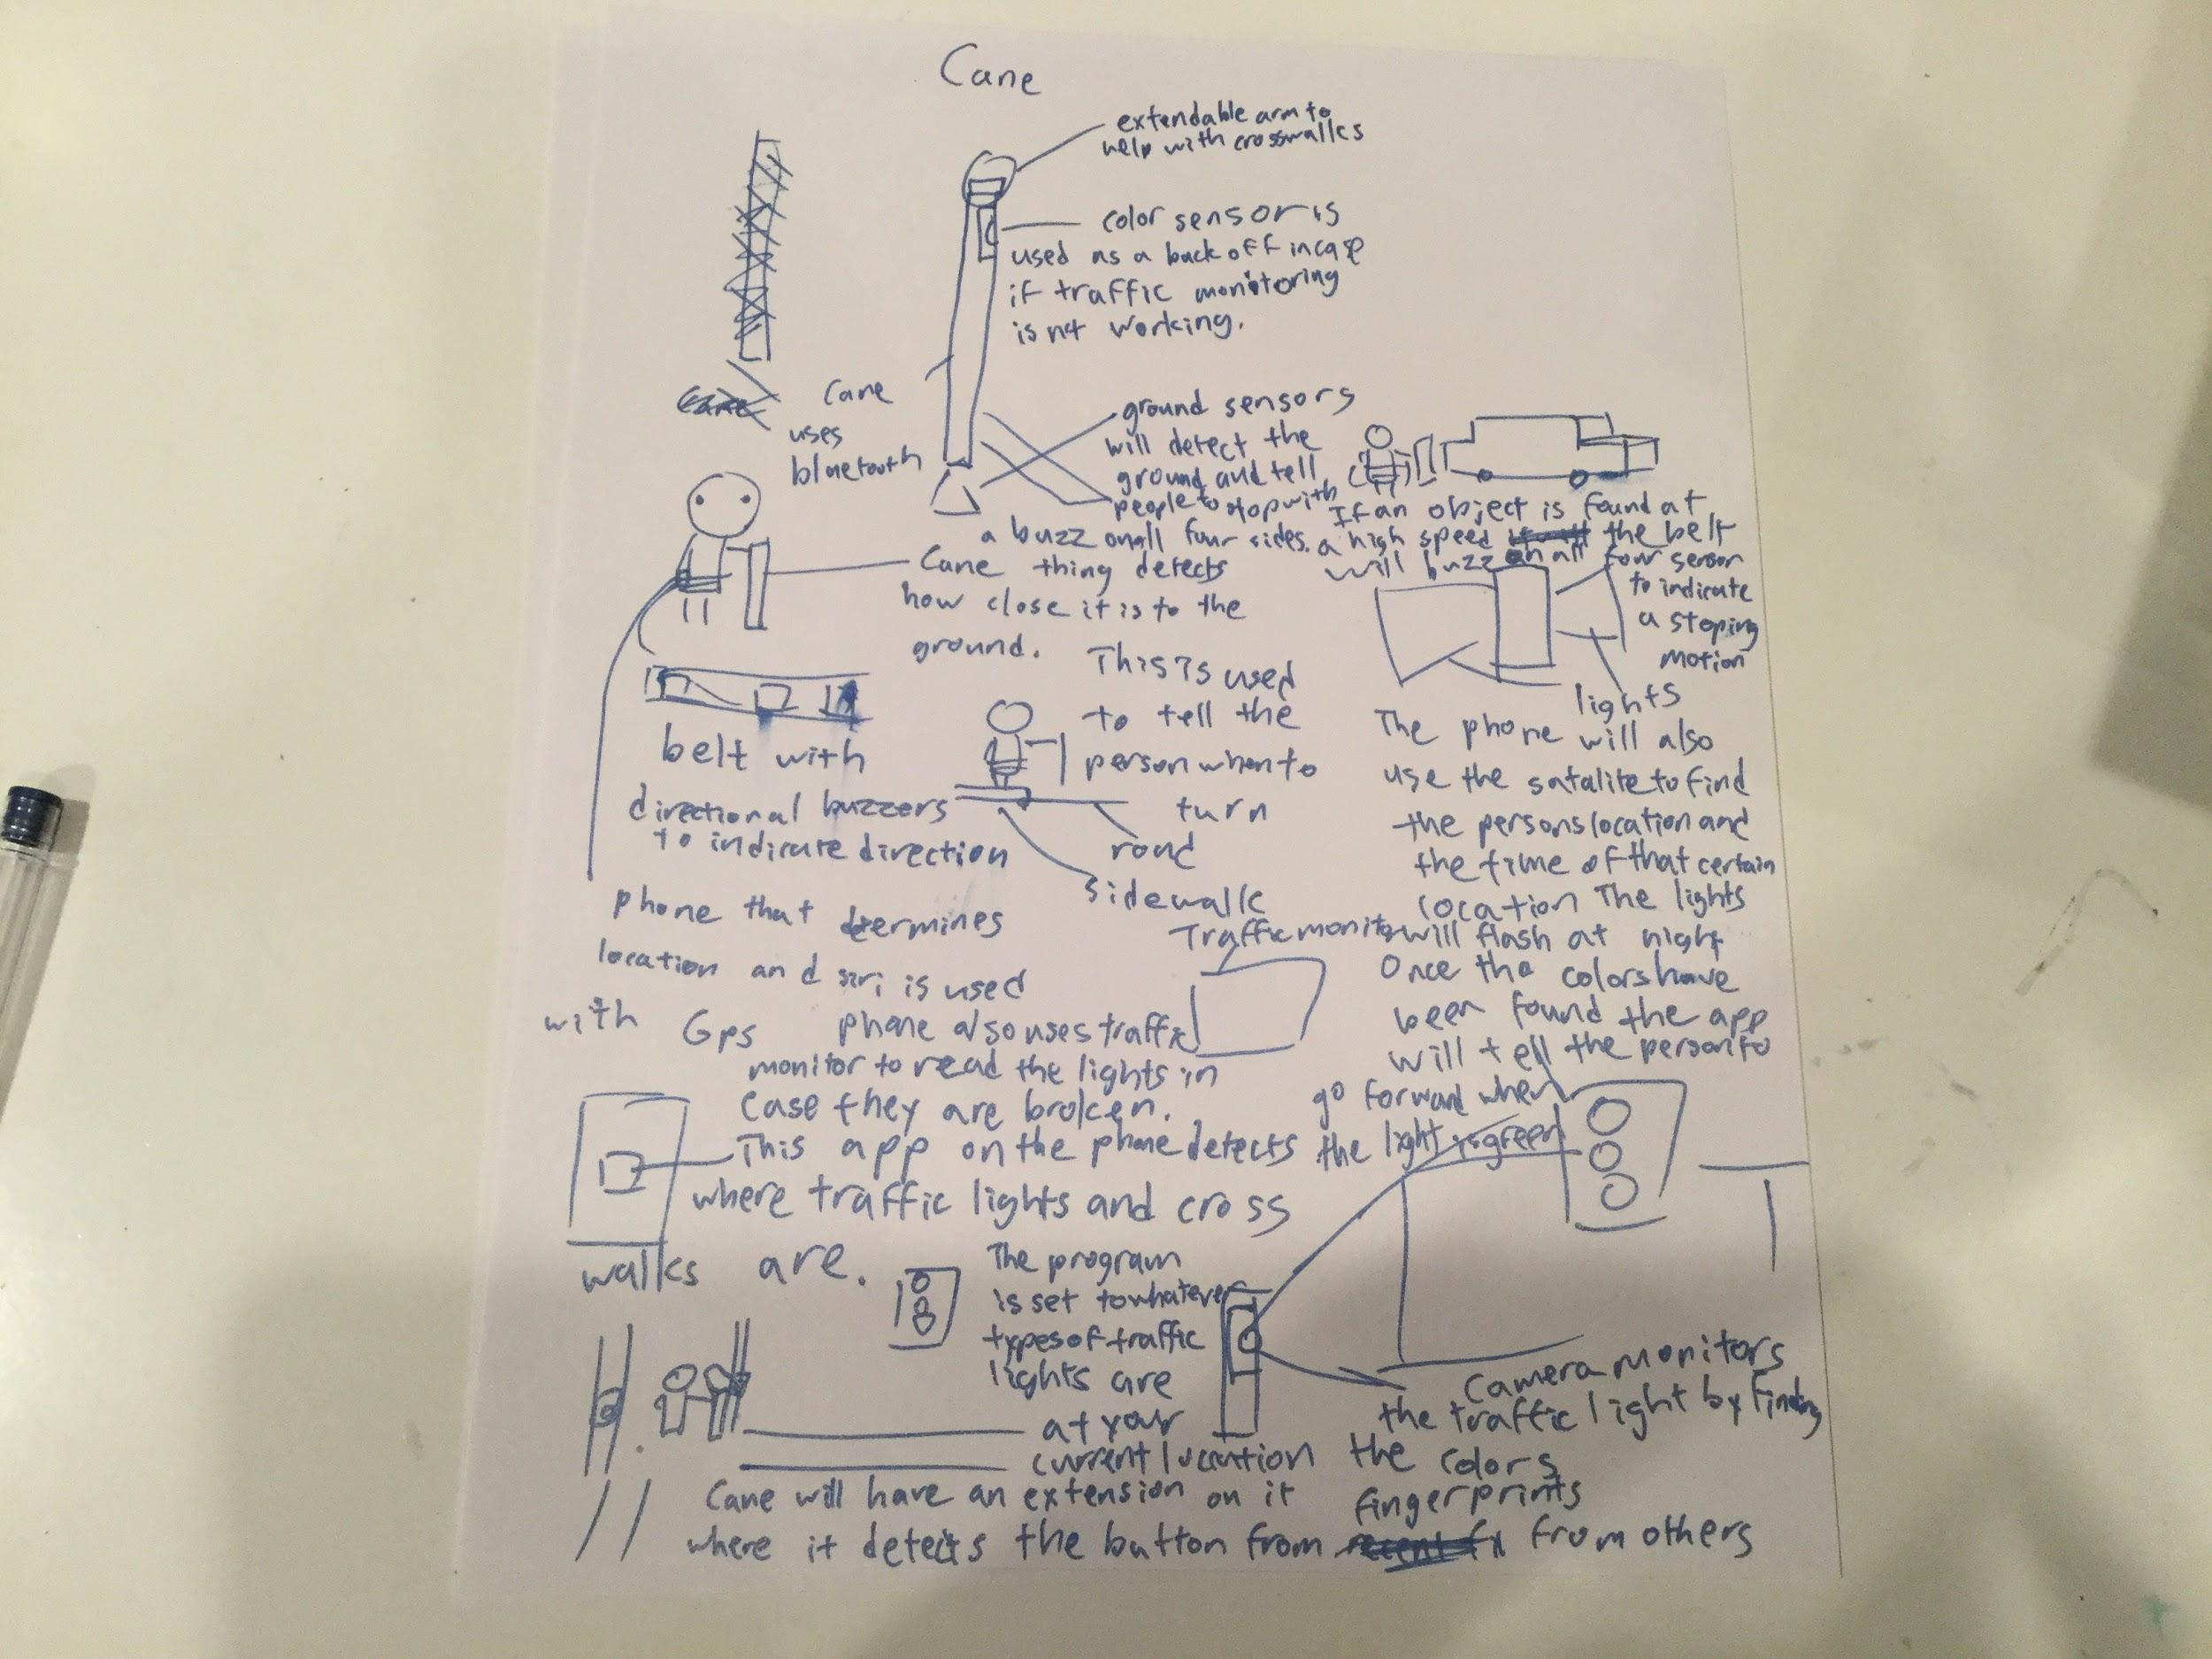 Cane
extendable arm to
help with crosswalks
color sensor is
used as a back off incase
if traffic monitoring
is not working.
Cane
uses
bluetooth
ground sensors
will detect the
ground and tell
people to stop with
a buzz on all four sides.
If an object is found at
a high speed the belt
will buzz on all four sensor
to indicate
a stoping
motion
Cane thing detects
how close it is to the
ground.
This is used
to tell the
person when to
turn
road
sidewalk
belt with
directional buzzers
to indicate direction
phone that determines
location and siri is used
with Gps
lights
The phone will also
use the satalite to find
the persons location and
the time of that certain
location The lights
will flash at night
Once the colors have
been found the app
will tell the person to
go forward when
the light is green
Traffic monitor
phone also uses traffic
monitor to read the lights in
case they are broken.
This app on the phone detects
where traffic lights and cross
walks are.
The program
is set to whatever
types of traffic
lights are
at your
current location
Camera monitors
the traffic light by finding
the colors
Cane will have an extension on it
where it detects the button from fingerprints from others